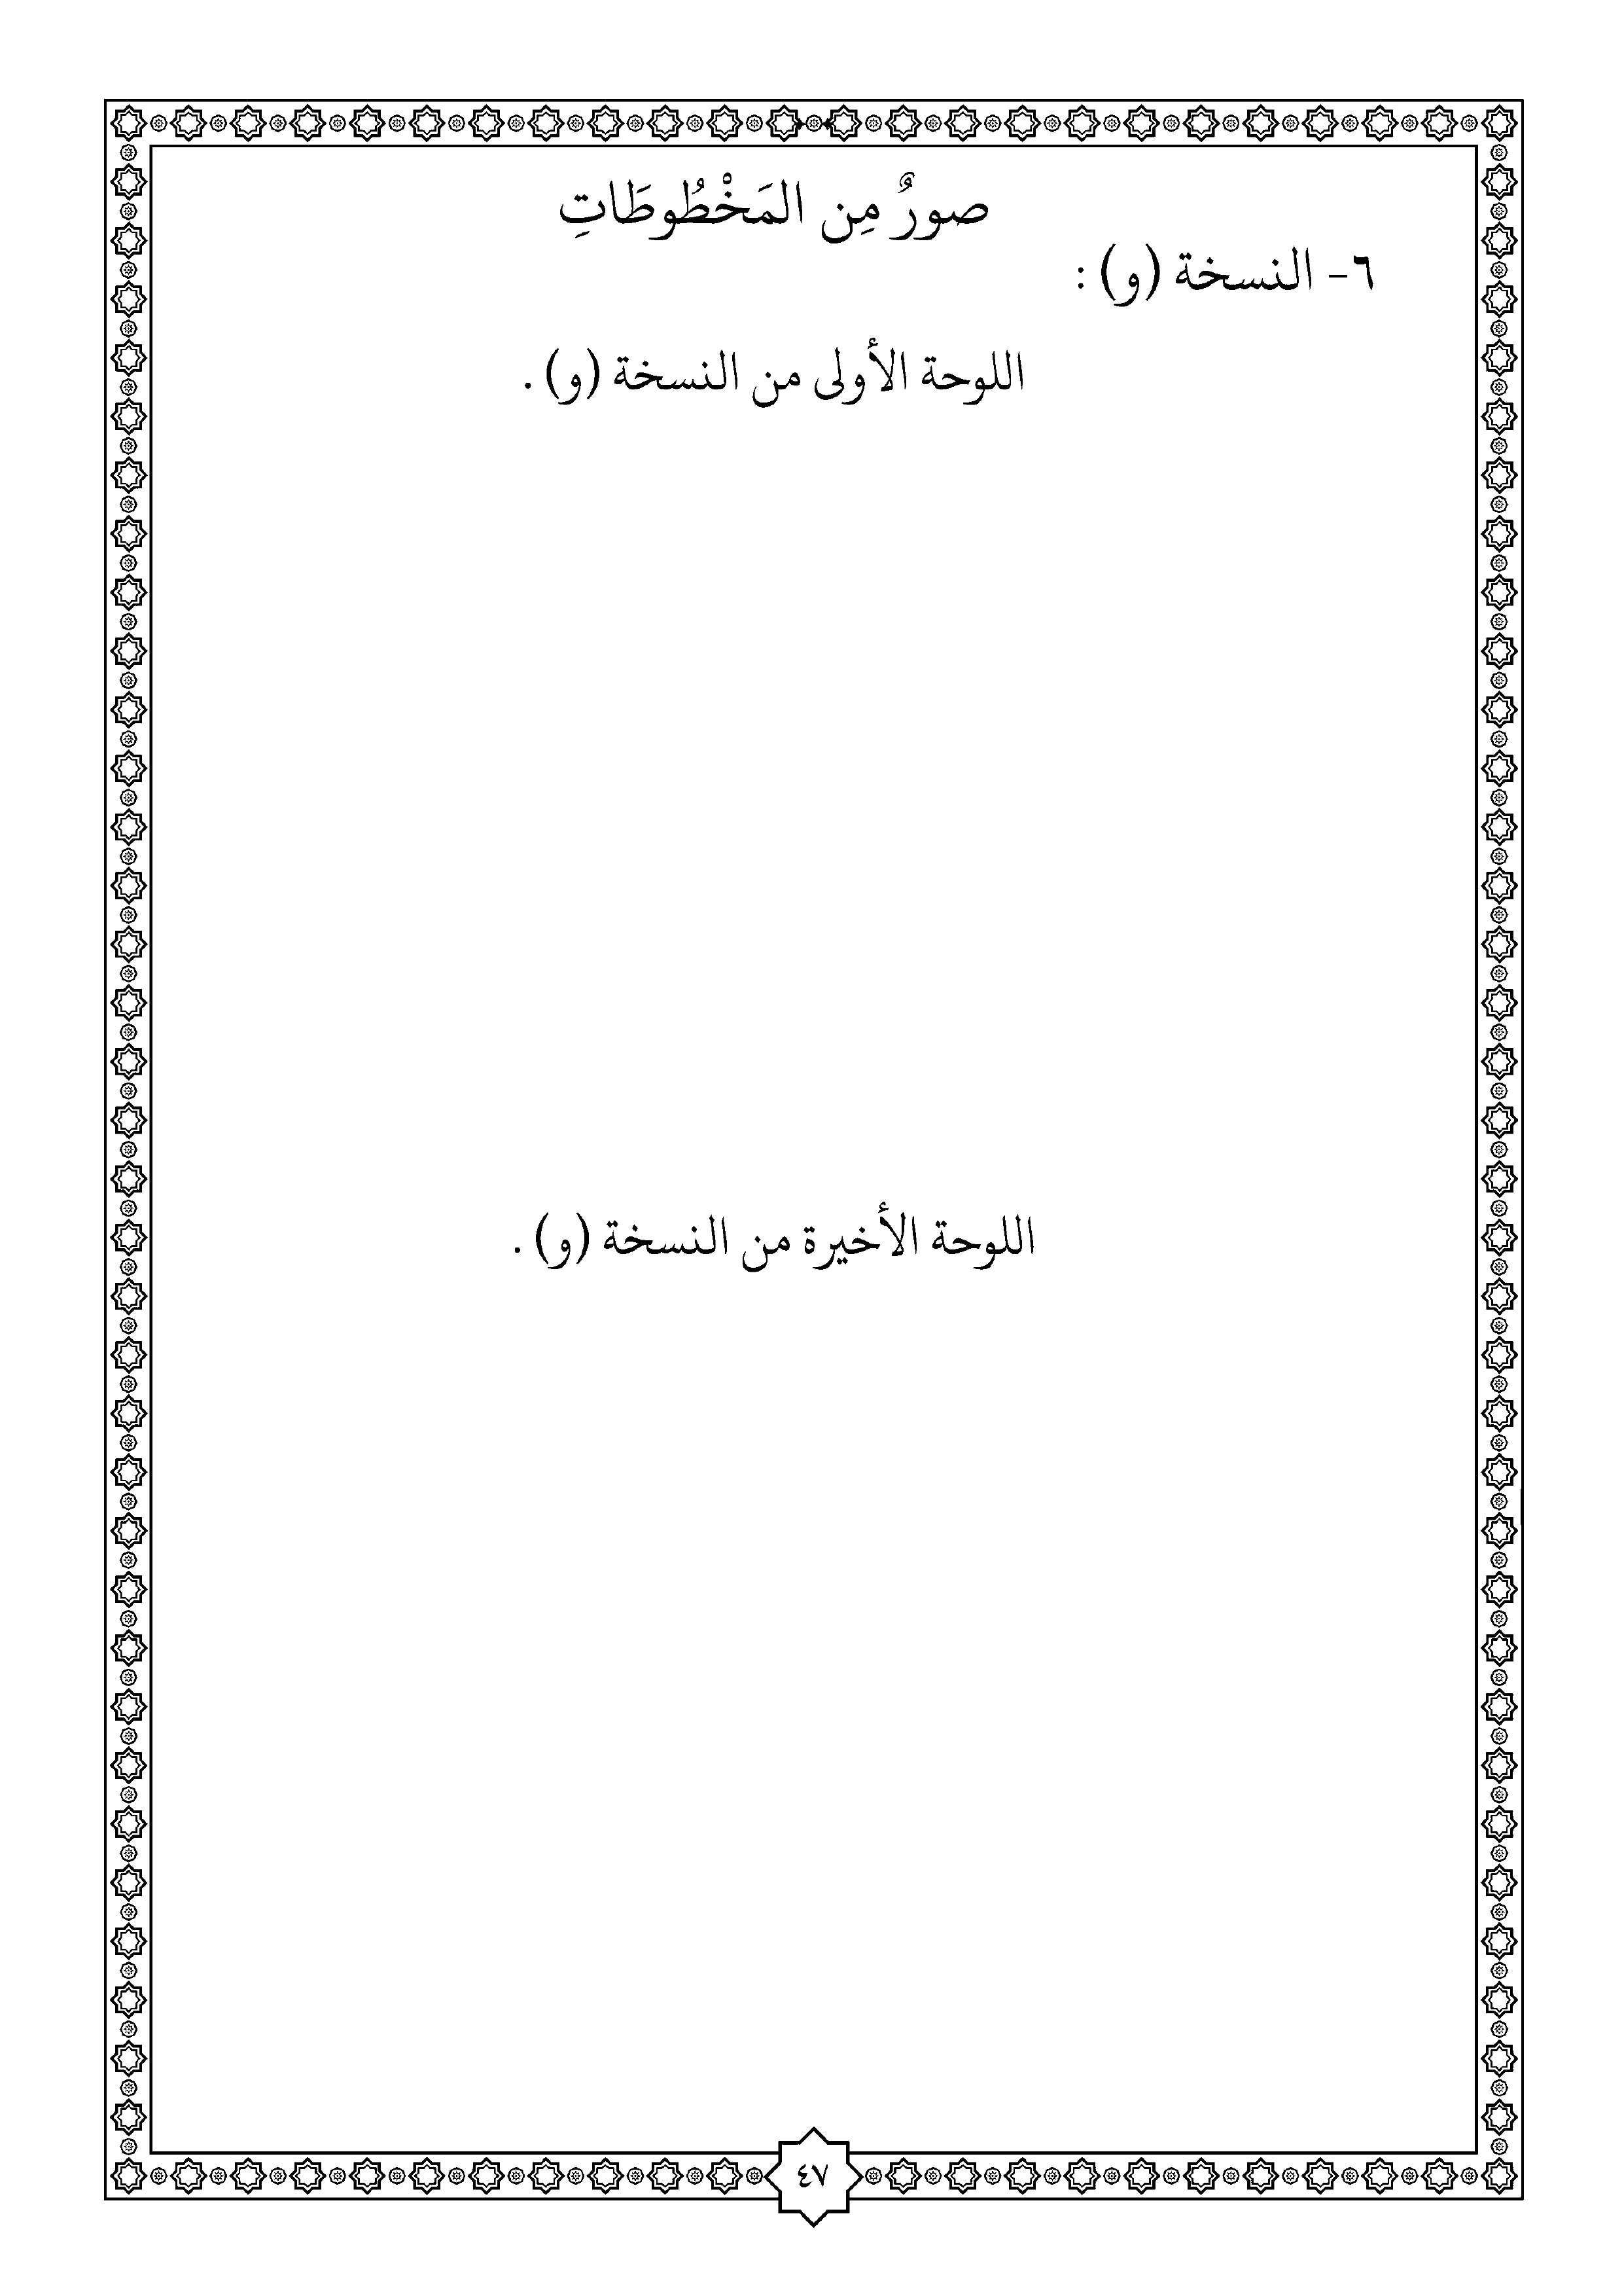 صورٌ مِن المَخْطُوطَاتِ
٦- النسخة (و) :
اللوحة الأولى من النسخة (و) .
اللوحة الأخيرة من النسخة (و) .
٤٧